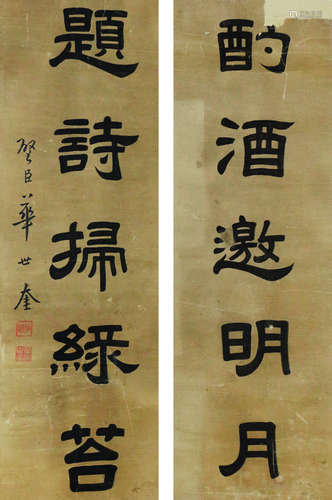 酌酒邀明月
題詩掃綠苔
啓臣華世奎